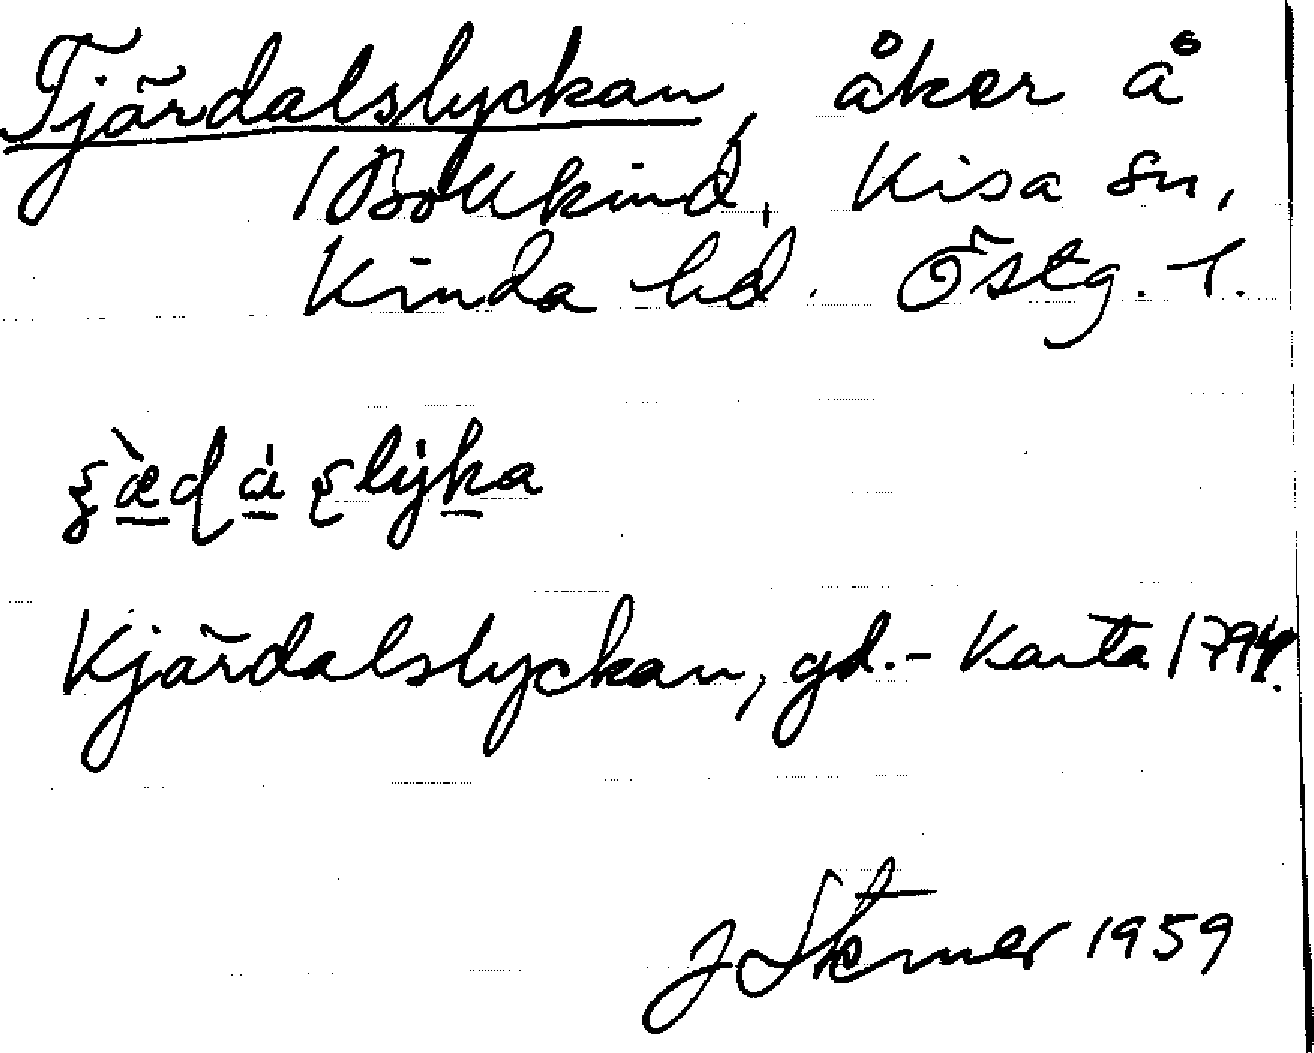 Tjärdalslyckan, åker å
Bollkind, Kisa sn,
Kinda hd. Östg. l.
Kjärdalslyckan, gd. - Karta 1794.
J Sterner 1959